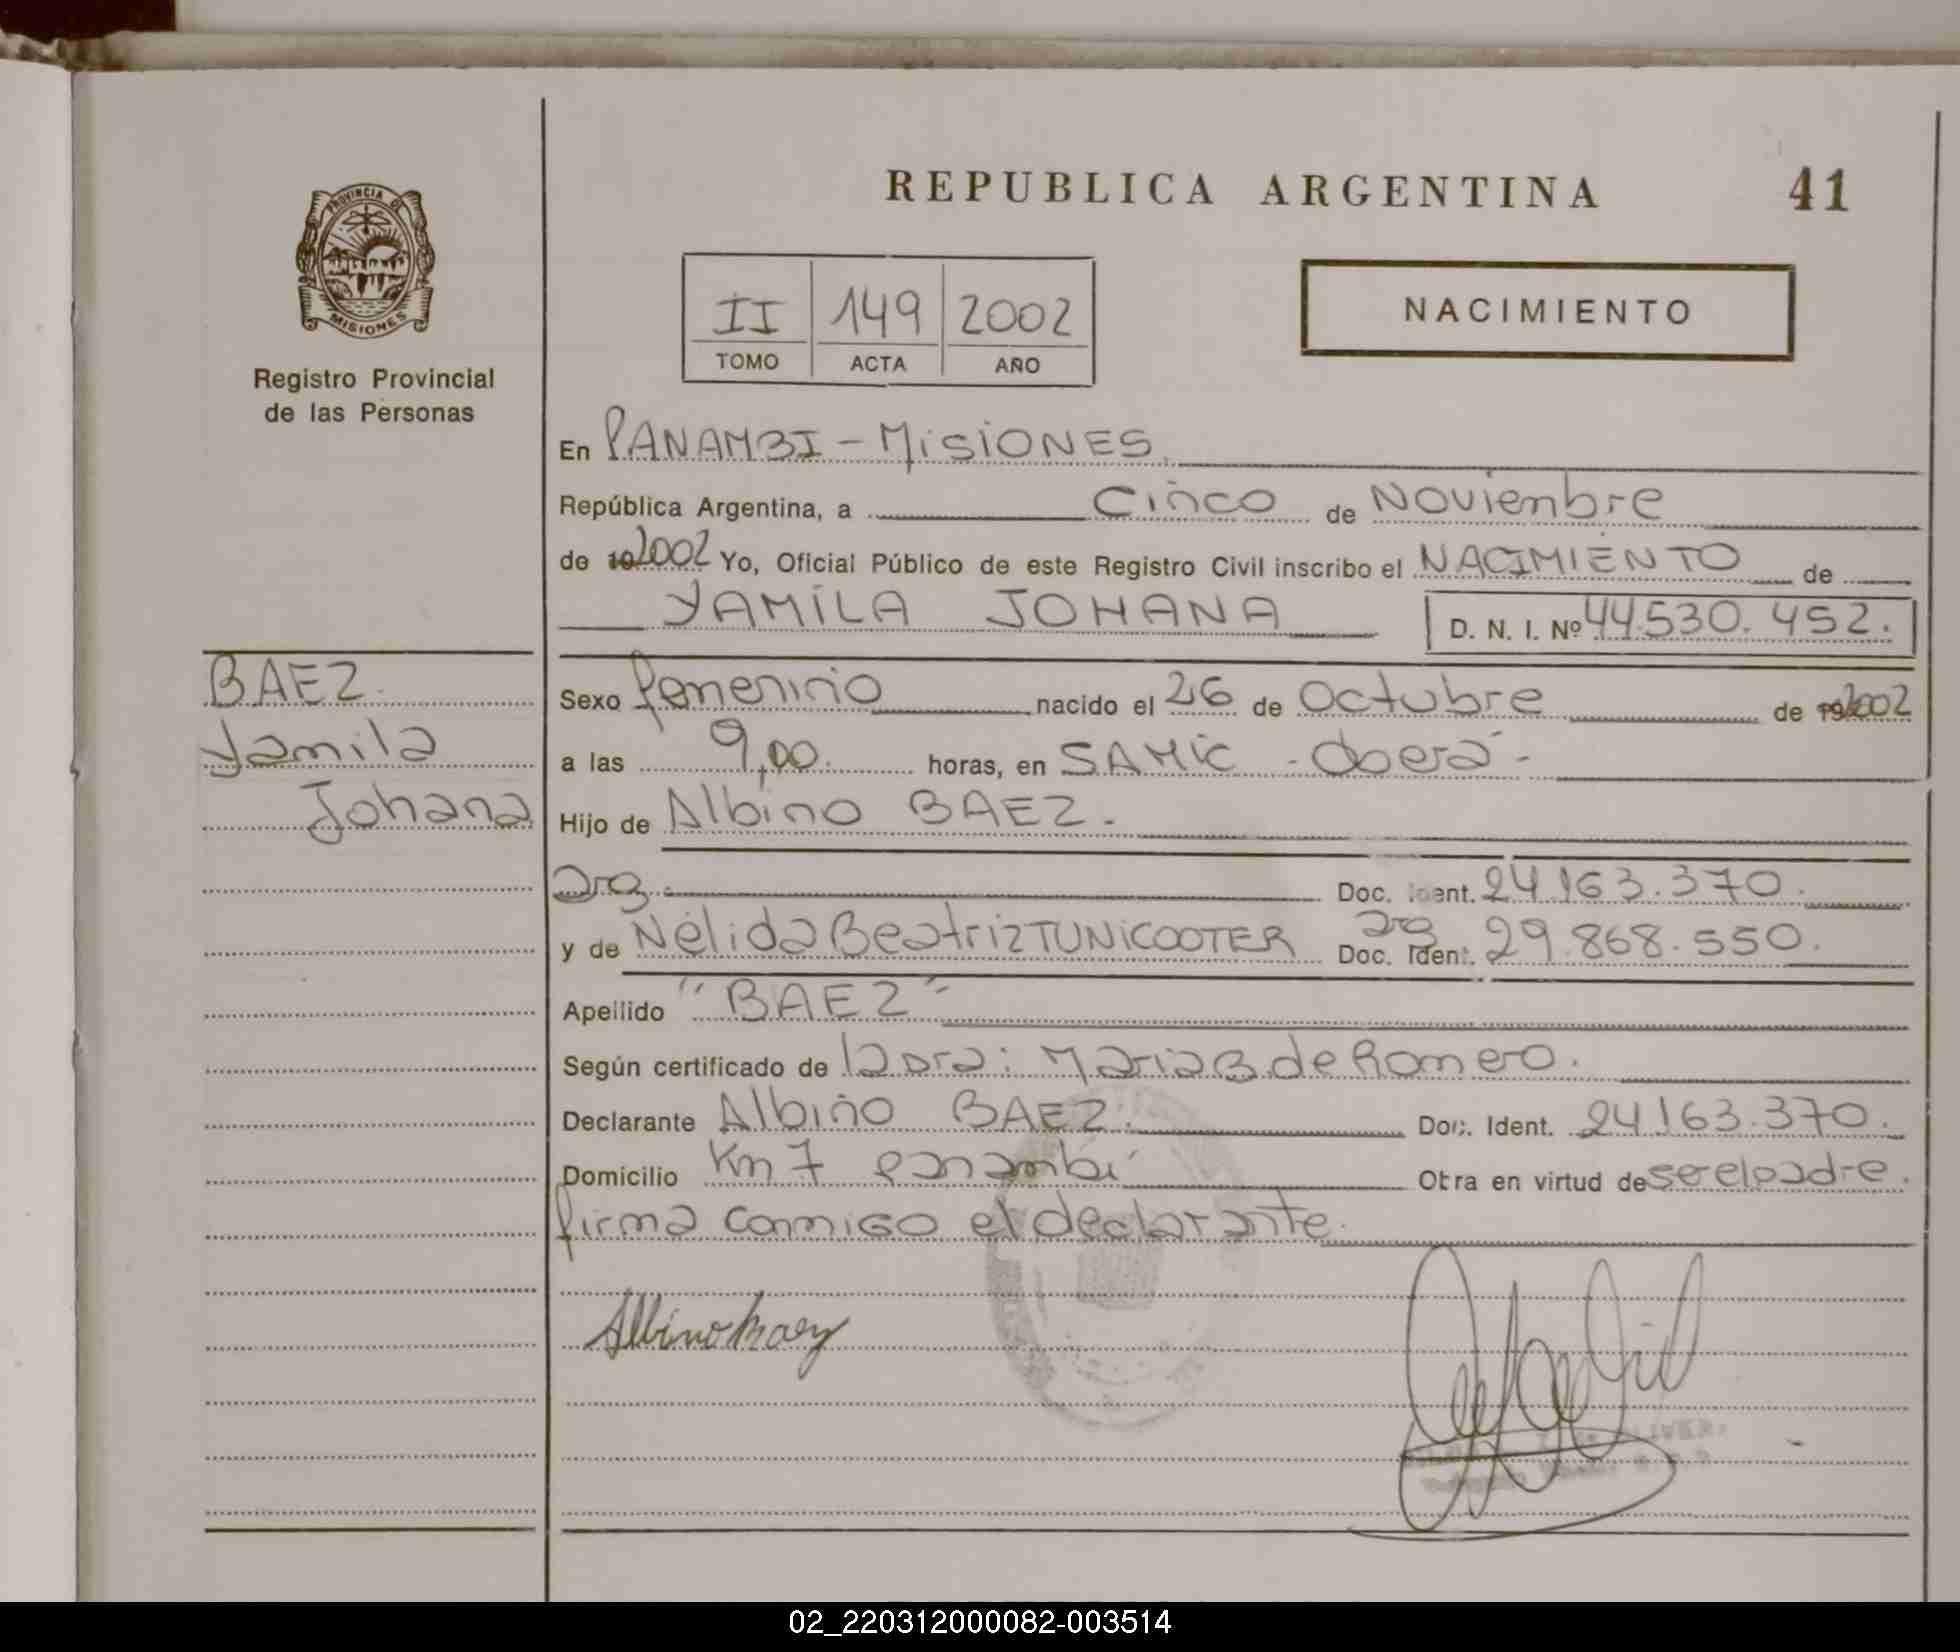 REPUBLICA ARGENTINA 41
PROVINCIA DE
MISIONES
Registro Provincial
de las Personas
II 149 2002
TOMO ACTA AÑO
NACIMIENTO
En PANAMBI - MISIONES.
República Argentina, a Cinco de Noviembre
de 19 2002 Yo, Oficial Público de este Registro Civil inscribo el NACIMIENTO de
YAMILA JOHANA D. N. I. Nº 44.530.452.
BAEZ.
Yamila
Johana
Sexo femenino nacido el 26 de Octubre de 19 2002
a las 9,00. horas, en SAMIC - Oberá -
Hijo de Albino BAEZ.
arg. Doc. Ident. 24.163.370.
y de Nélida Beatriz TUNICOOTER arg Doc. Ident. 29.868.550.
Apellido "BAEZ"
Según certificado de la Dra: Maria B. de Romero.
Declarante Albino BAEZ. Doc. Ident. 24.163.370.
Domicilio Km 7 Panambí Otra en virtud de ser el padre.
firma conmigo el declarante.
Albino Baez
02_220312000082-003514